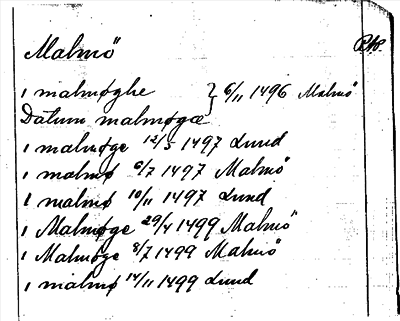 Malmö
i malmøghe } 6/11 1496 Malmö
Datum malmøgæ
i malmøge 12/5 1497 Lund
i malmø 6/7 1497 Malmö
i malmø 10/11 1497 Lund
i Malmøge 29/4 1499 Malmö
i Malmøge 8/7 1499 Malmö
i malmø 14/11 1499 Lund